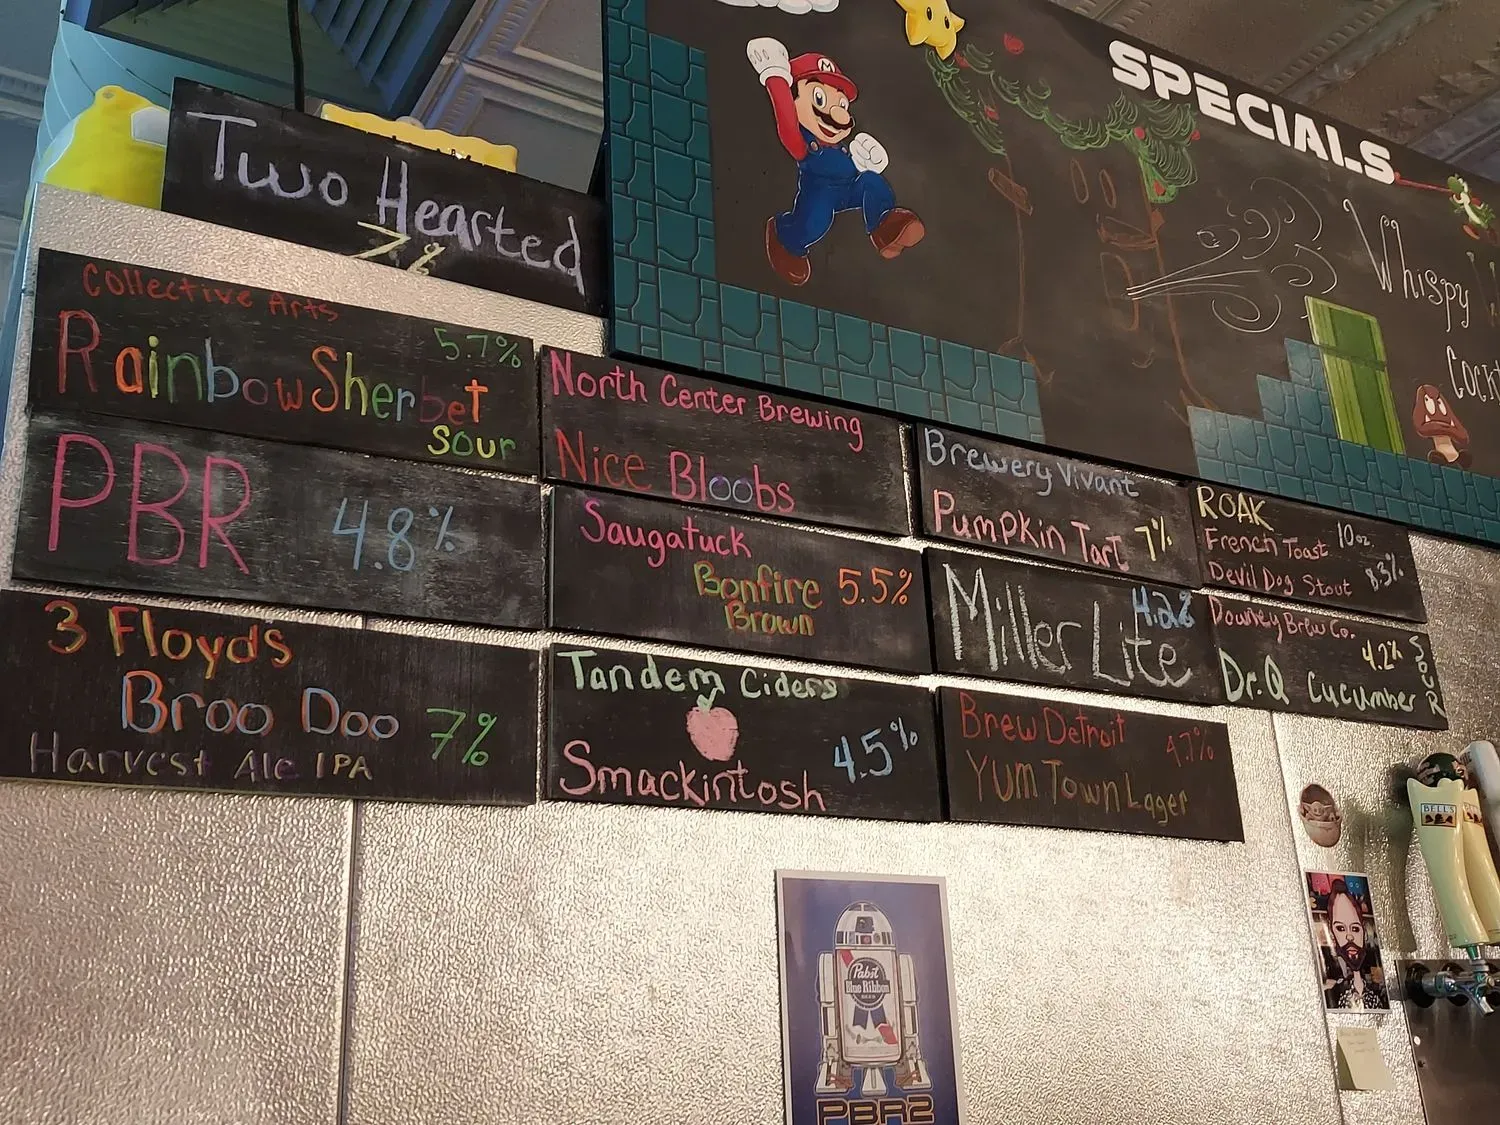 Two Hearted
7%
Collective Arts
5.7%
Rainbow Sherbet
sour
PBR 4.8%
3 Floyds
Broo Doo 7%
Harvest Ale IPA
North Center Brewing
Nice Bloobs
Saugatuck
Bonfire 5.5%
Brown
Tandem Ciders
4.5%
Smackintosh
Brewery Vivant
Pumpkin Tart 7%
Miller Lite 4.2%
Brew Detroit 4.7%
Yum Town Lager
ROAK
French Toast 10oz
Devil Dog Stout 8.3%
Downey Brew Co.
4.2%
Dr.Q Cucumber
SOUR
SPECIALS
Whispy
M
BELL'S
Pabst
Blue Ribbon
BEER
PBR2